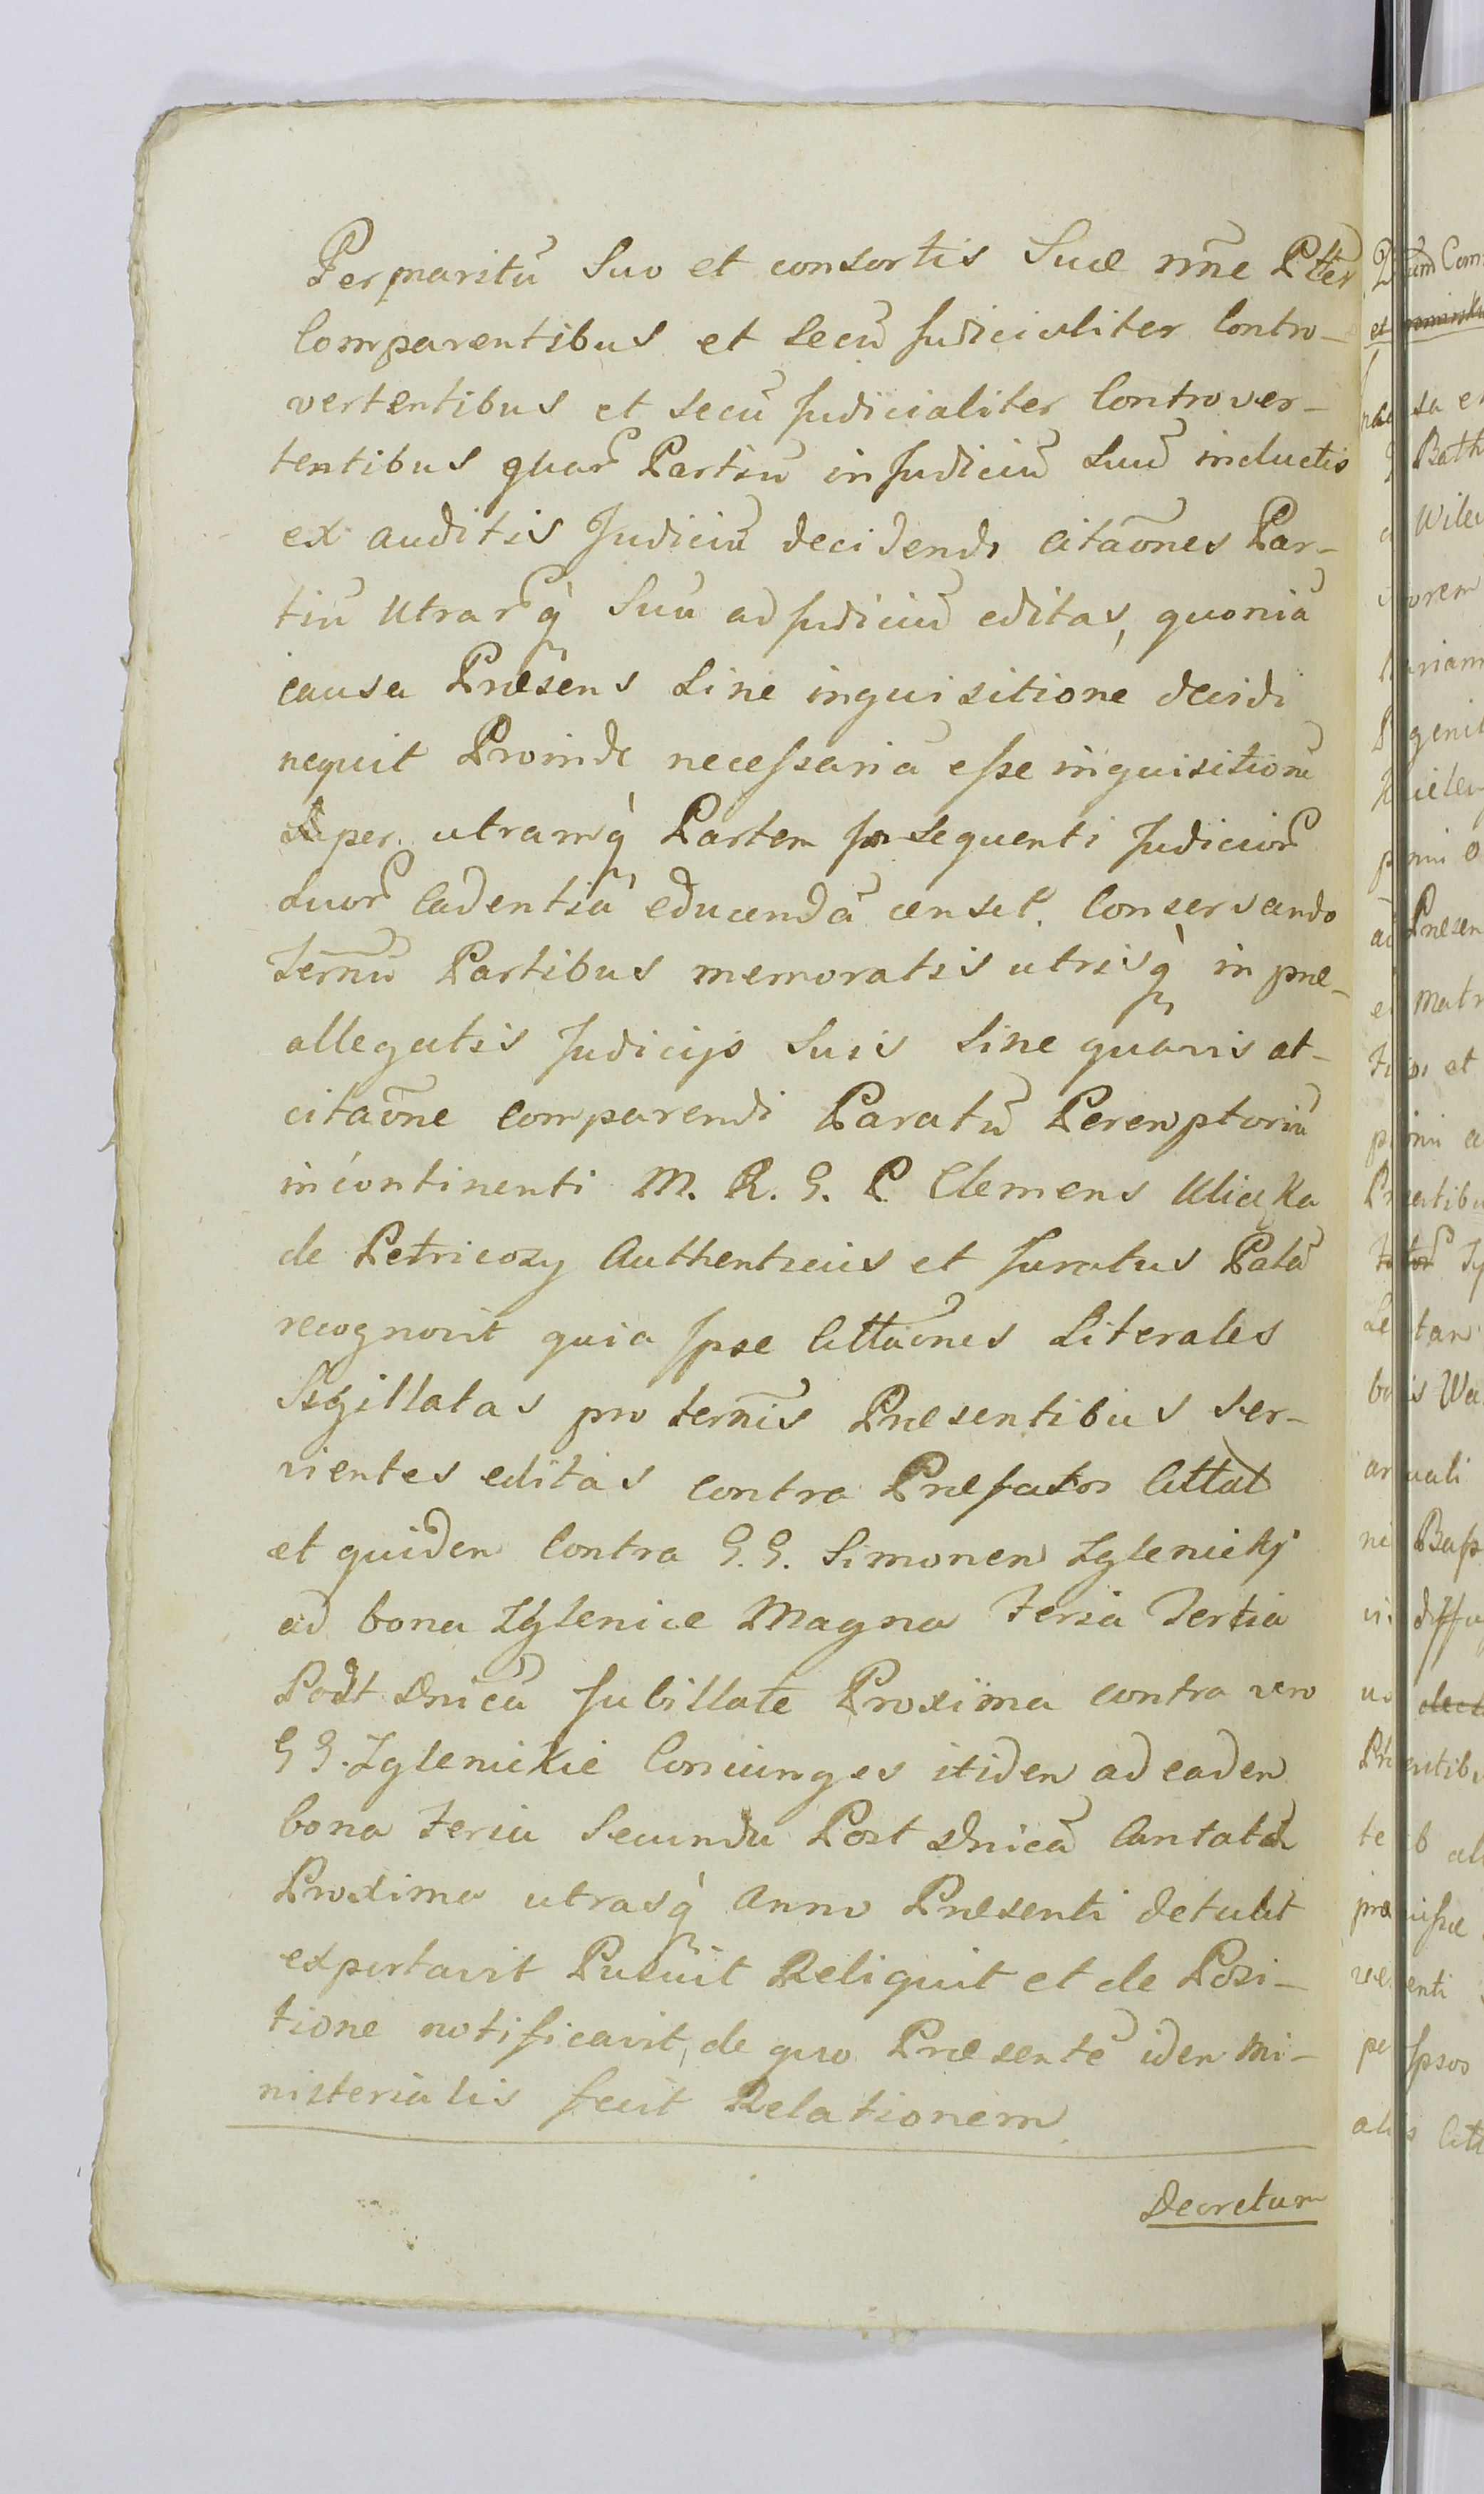 Per maritũ Suo et consortis Suæ nm̃e Ptter
Comparentibus et Secũ Judicialiter Contro-
vertentibus et secũ Judicialiter Controver-
tentibus quar̃ Partiũ in Judiciũ Suũ inductis
ex auditis Judiciũ decidendo citãones Par-
tiũ Utrarq̀ Suũ ad Judiciũ editas, quoniã
causa Præsens Sine inquisitione decidi
nequit Proinde necessariã esse inquisitionẽ
super utramq̀ Partem in sequenti Judicior̃
Suor̃ Cadentiã educendã censet. Conservando
Termñũ Partibus memoratis utrisq̀ in præ-
allegatis Judicijs Suis Sine quavis at-
citãone comparendi Paratũ Peremptoriũ
in continenti M. R. G. P. Clemens Uliaka
de Petricozy Authenticus et Juratus Palã
recognovit quia Ipse Cittãones Literales
Sigillatas pro termĩs Præsentibus Ser-
vientes editas contra Præfatos Cittat
et quidem Contra G. G. Simonem Zglenickj
ad bona Zglenice Magna Feria Tertia
Post Dnicã Jubillate Proxima contra vero
G G. Zglenickie Coniunges itidem ad eadem
bona Feria Secunda Post Dnicã Cantate
Proxima utrasq̀ Anno Præsenti detulit
exportavit Posuit Reliquit et de Posi-
tione notificavit, de quo Præsentẽ idem Mi-
nisterialis fecit Relationem
Decretum